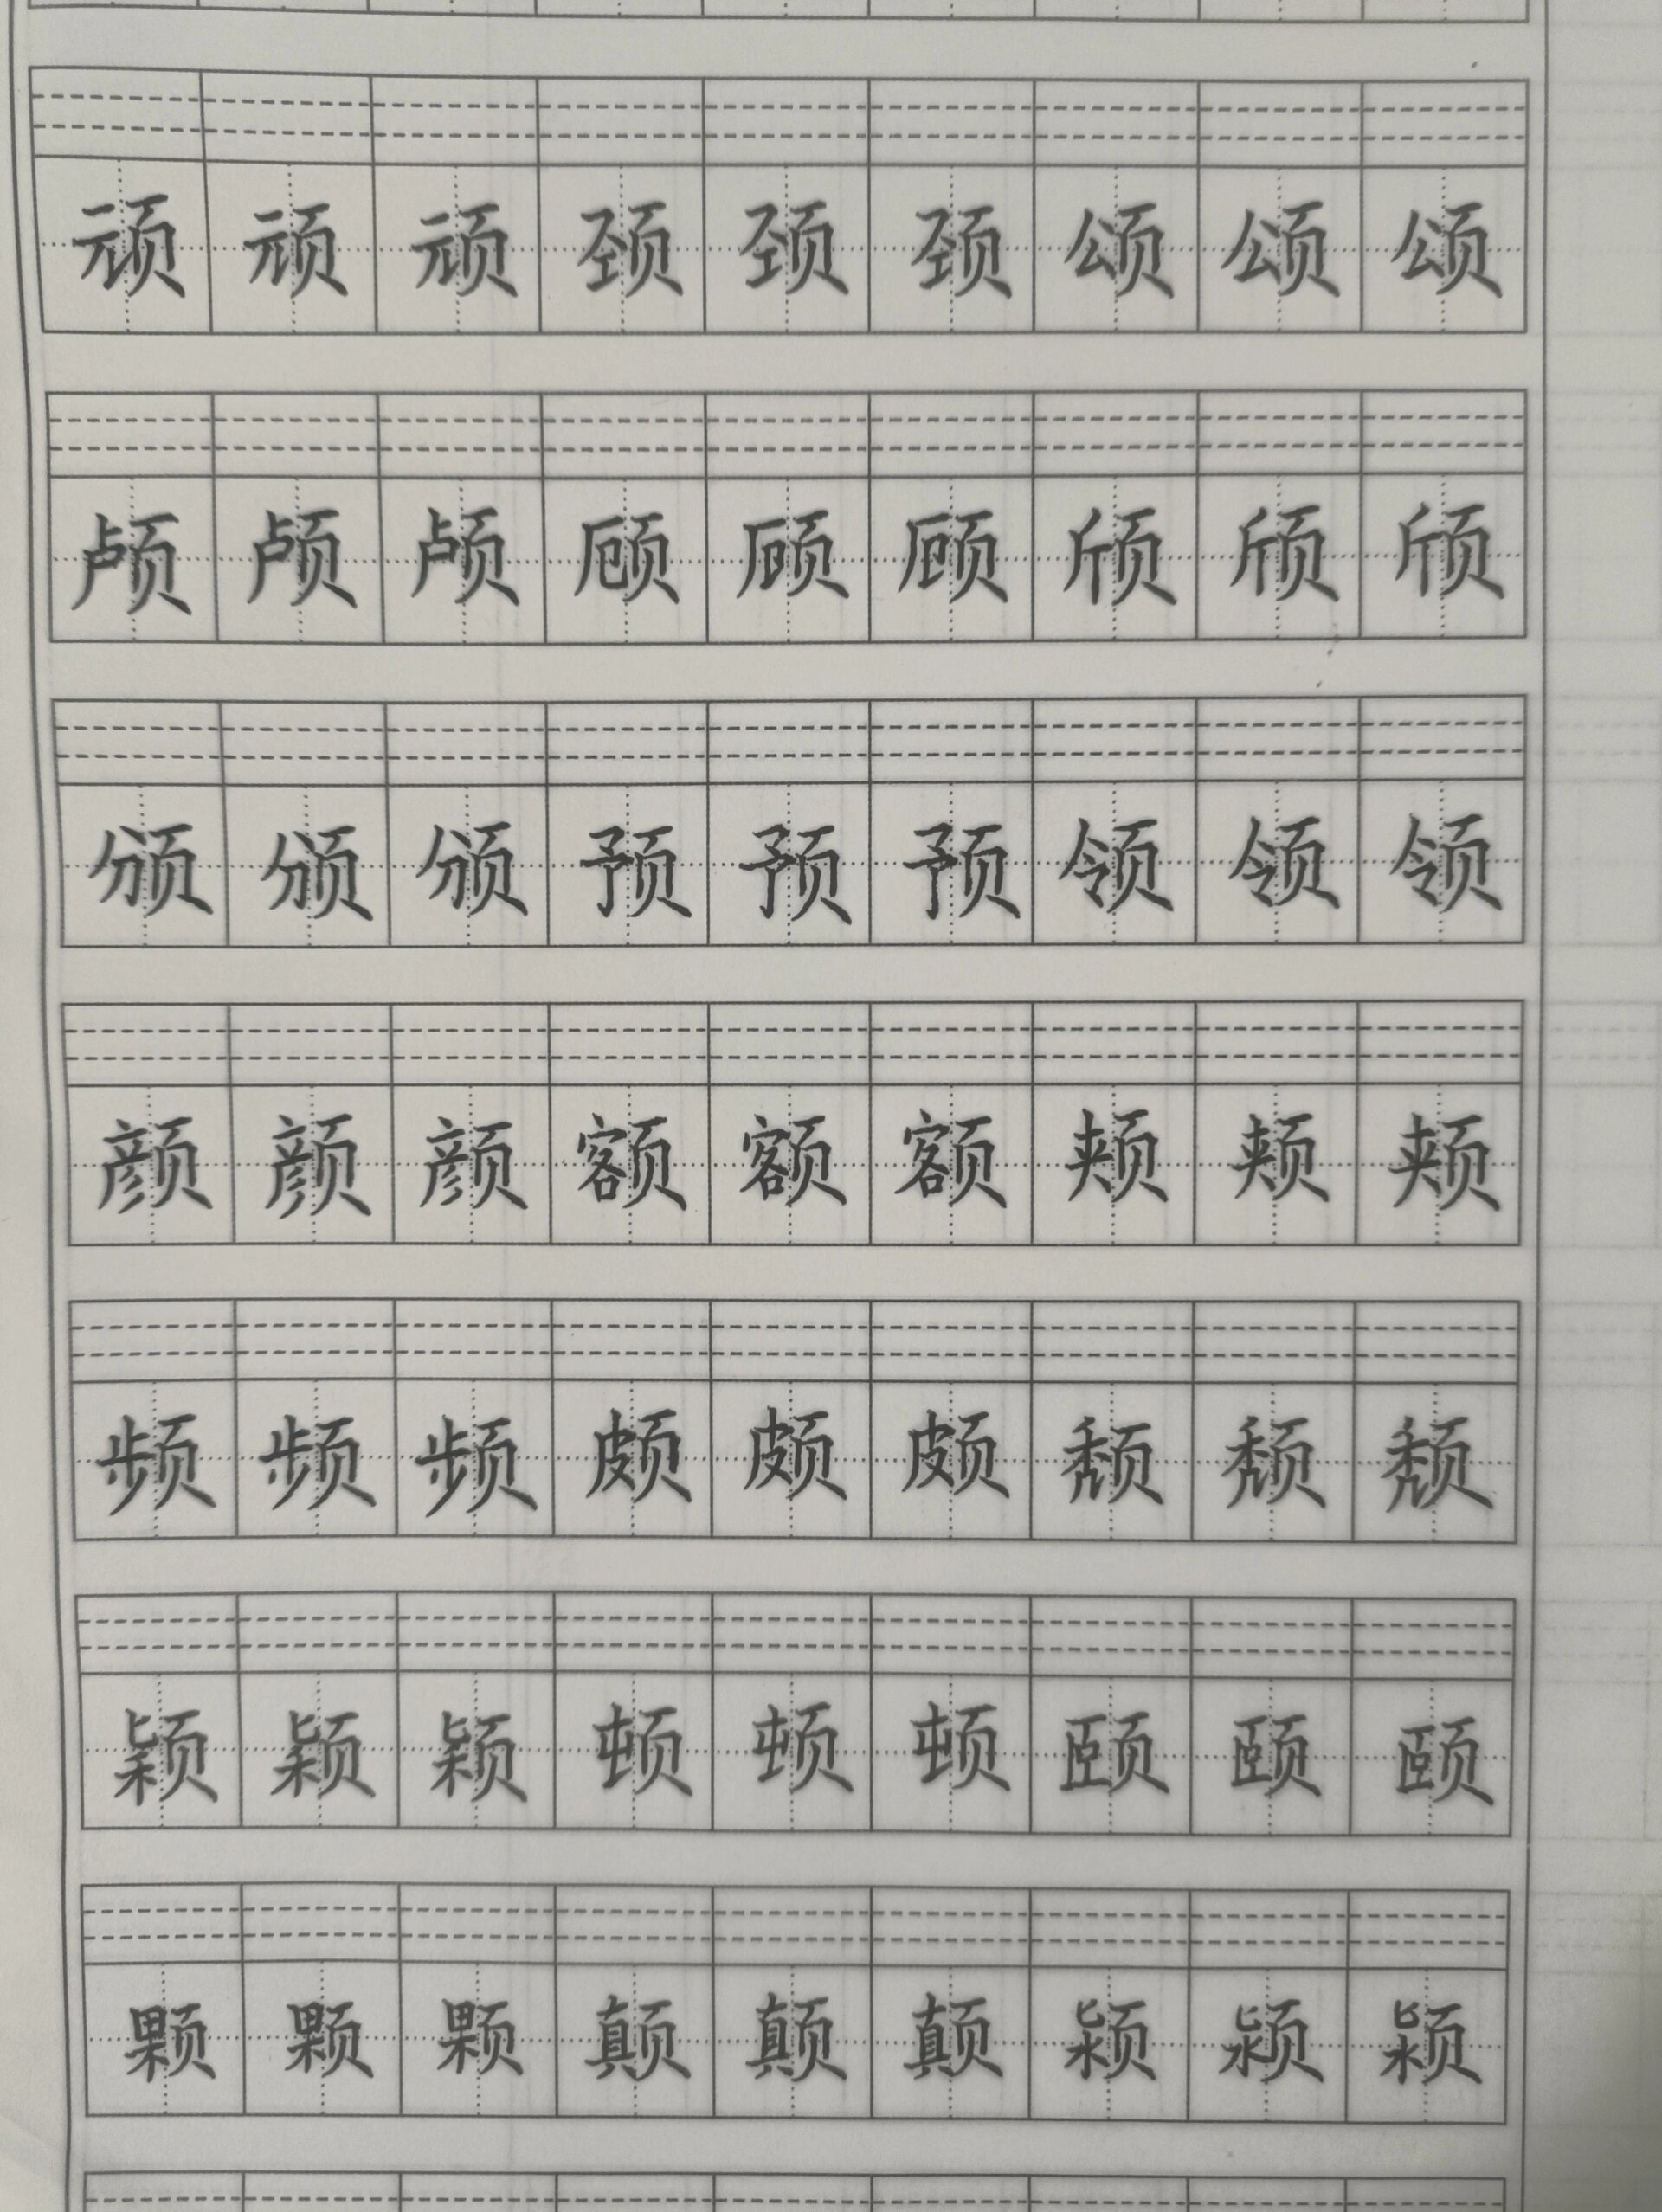 顽顽顽颈颈颈颂颂颂
颅颅颅顾顾顾颀颀颀
颁颁颁预预预领领领
颜颜颜额额额颊颊颊
频频频颇颇颇颓颓颓
颖颖颖顿顿顿颐颐颐
颗颗颗颠颠颠颍颍颍